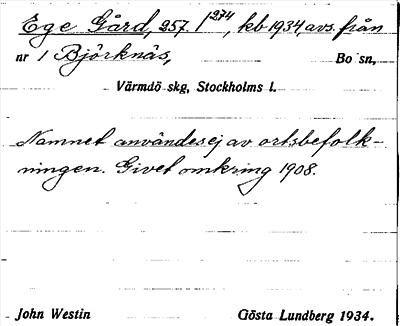 Ege Gård, 257. 1²⁷⁴, kb 1934, avs. från
nr 1 Björknäs, Bo sn,
Värmdö skg, Stockholms l.
Namnet användes ej av ortsbefolk-
ningen. Givet omkring 1908.
John Westin Gösta Lundberg 1934.